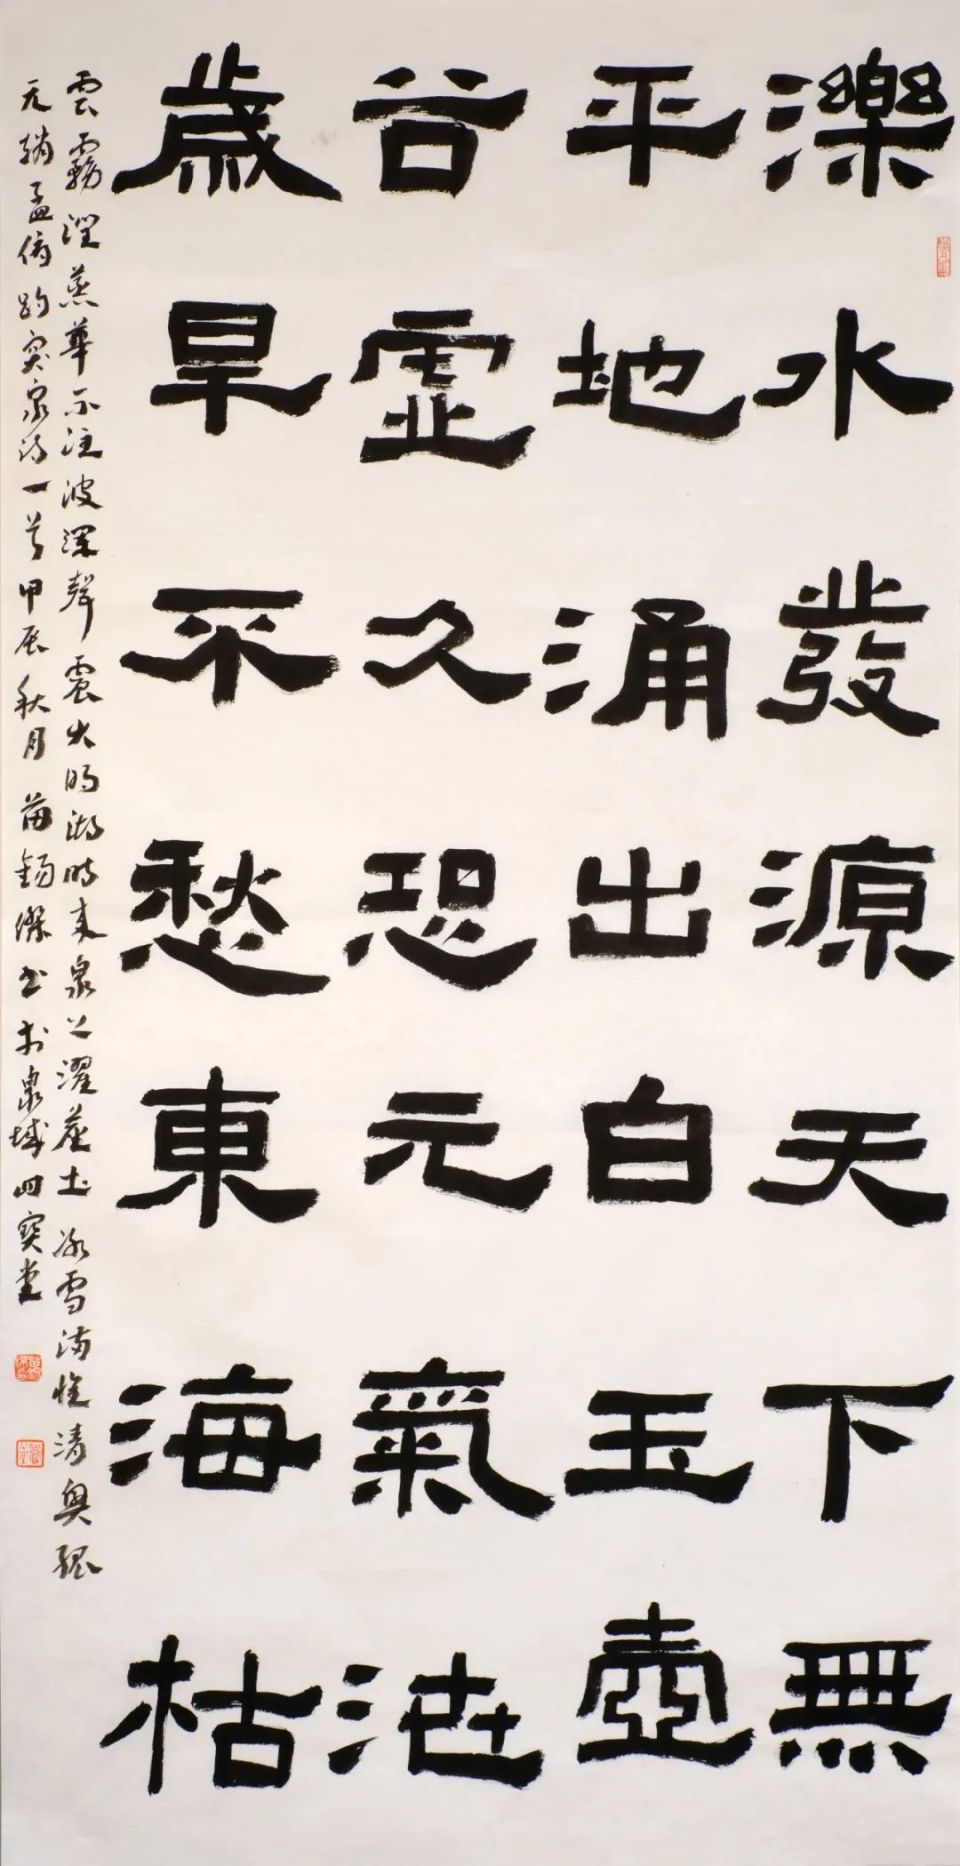 濼水發源天下無
平地涌出白玉壺
谷虛久恐元氣泄
歲旱不愁東海枯
雲霧潤蒸華不注波深聲震大明湖時來泉上濯塵土冰雪滿懷清興孤
元趙孟俯趵突泉詩一首甲辰秋月苗錫傑書於泉城四寶堂